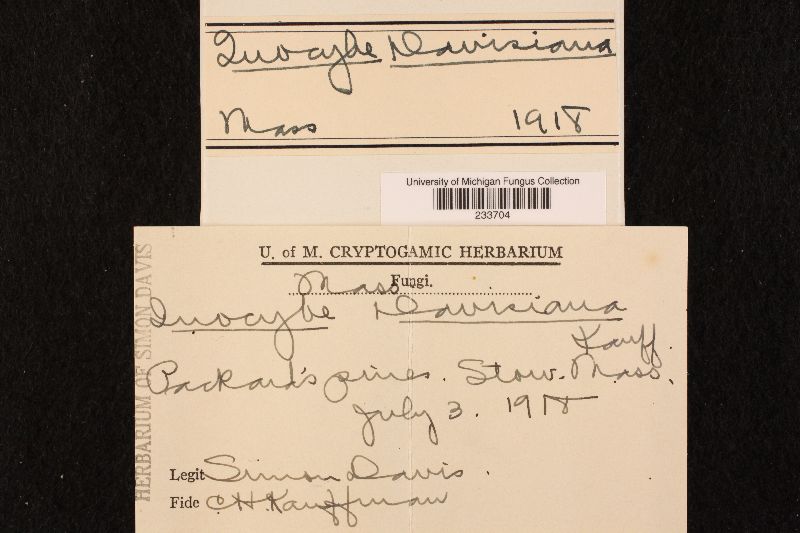 Inocybe Davisiana
Mass 1918
University of Michigan Fungus Collection
233704
U. of M. CRYPTOGAMIC HERBARIUM
Fungi.
Mass
Inocybe Davisiana
Kauff.
Packard's pines. Stow. Mass.
July 3. 1918
Legit Simon Davis.
Fide C H Kauffman
HERBARIUM OF SIMON DAVIS